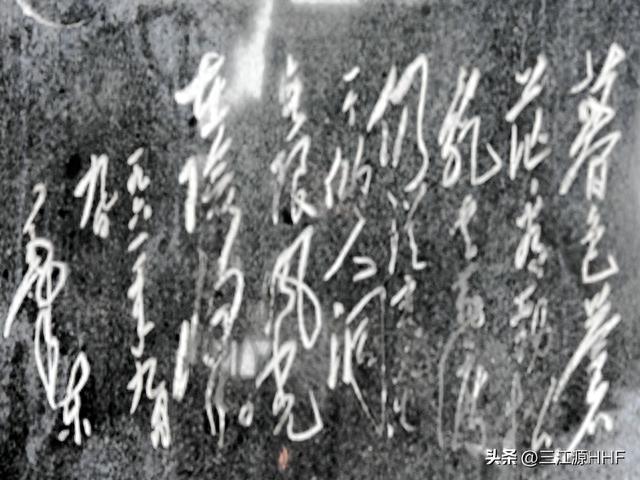 暮色蒼
茫看劲松
乱云飞渡
仍從容
人洞
无限风光
在险峰
一九六一年九月
九日
毛泽东
头条 @三江源HHF